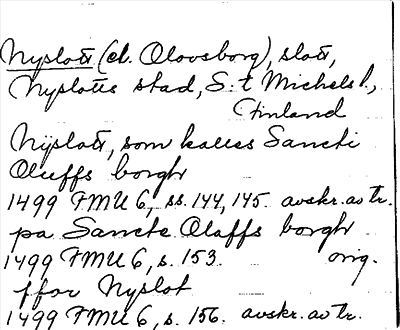 Nyslott (el. Olovsborg), slott,
Nyslotts stad, S:t Michels l.,
Finland
Nyslott, som kalles Sancti
Oluffs borgh
1499 FMU 6, ss. 144, 145. avskr. av tr.
pa Sancte Olaffs borgh
1499 FMU 6, s. 153. orig.
ffor Nyslot
1499 FMU 6, s. 156. avskr. av tr.